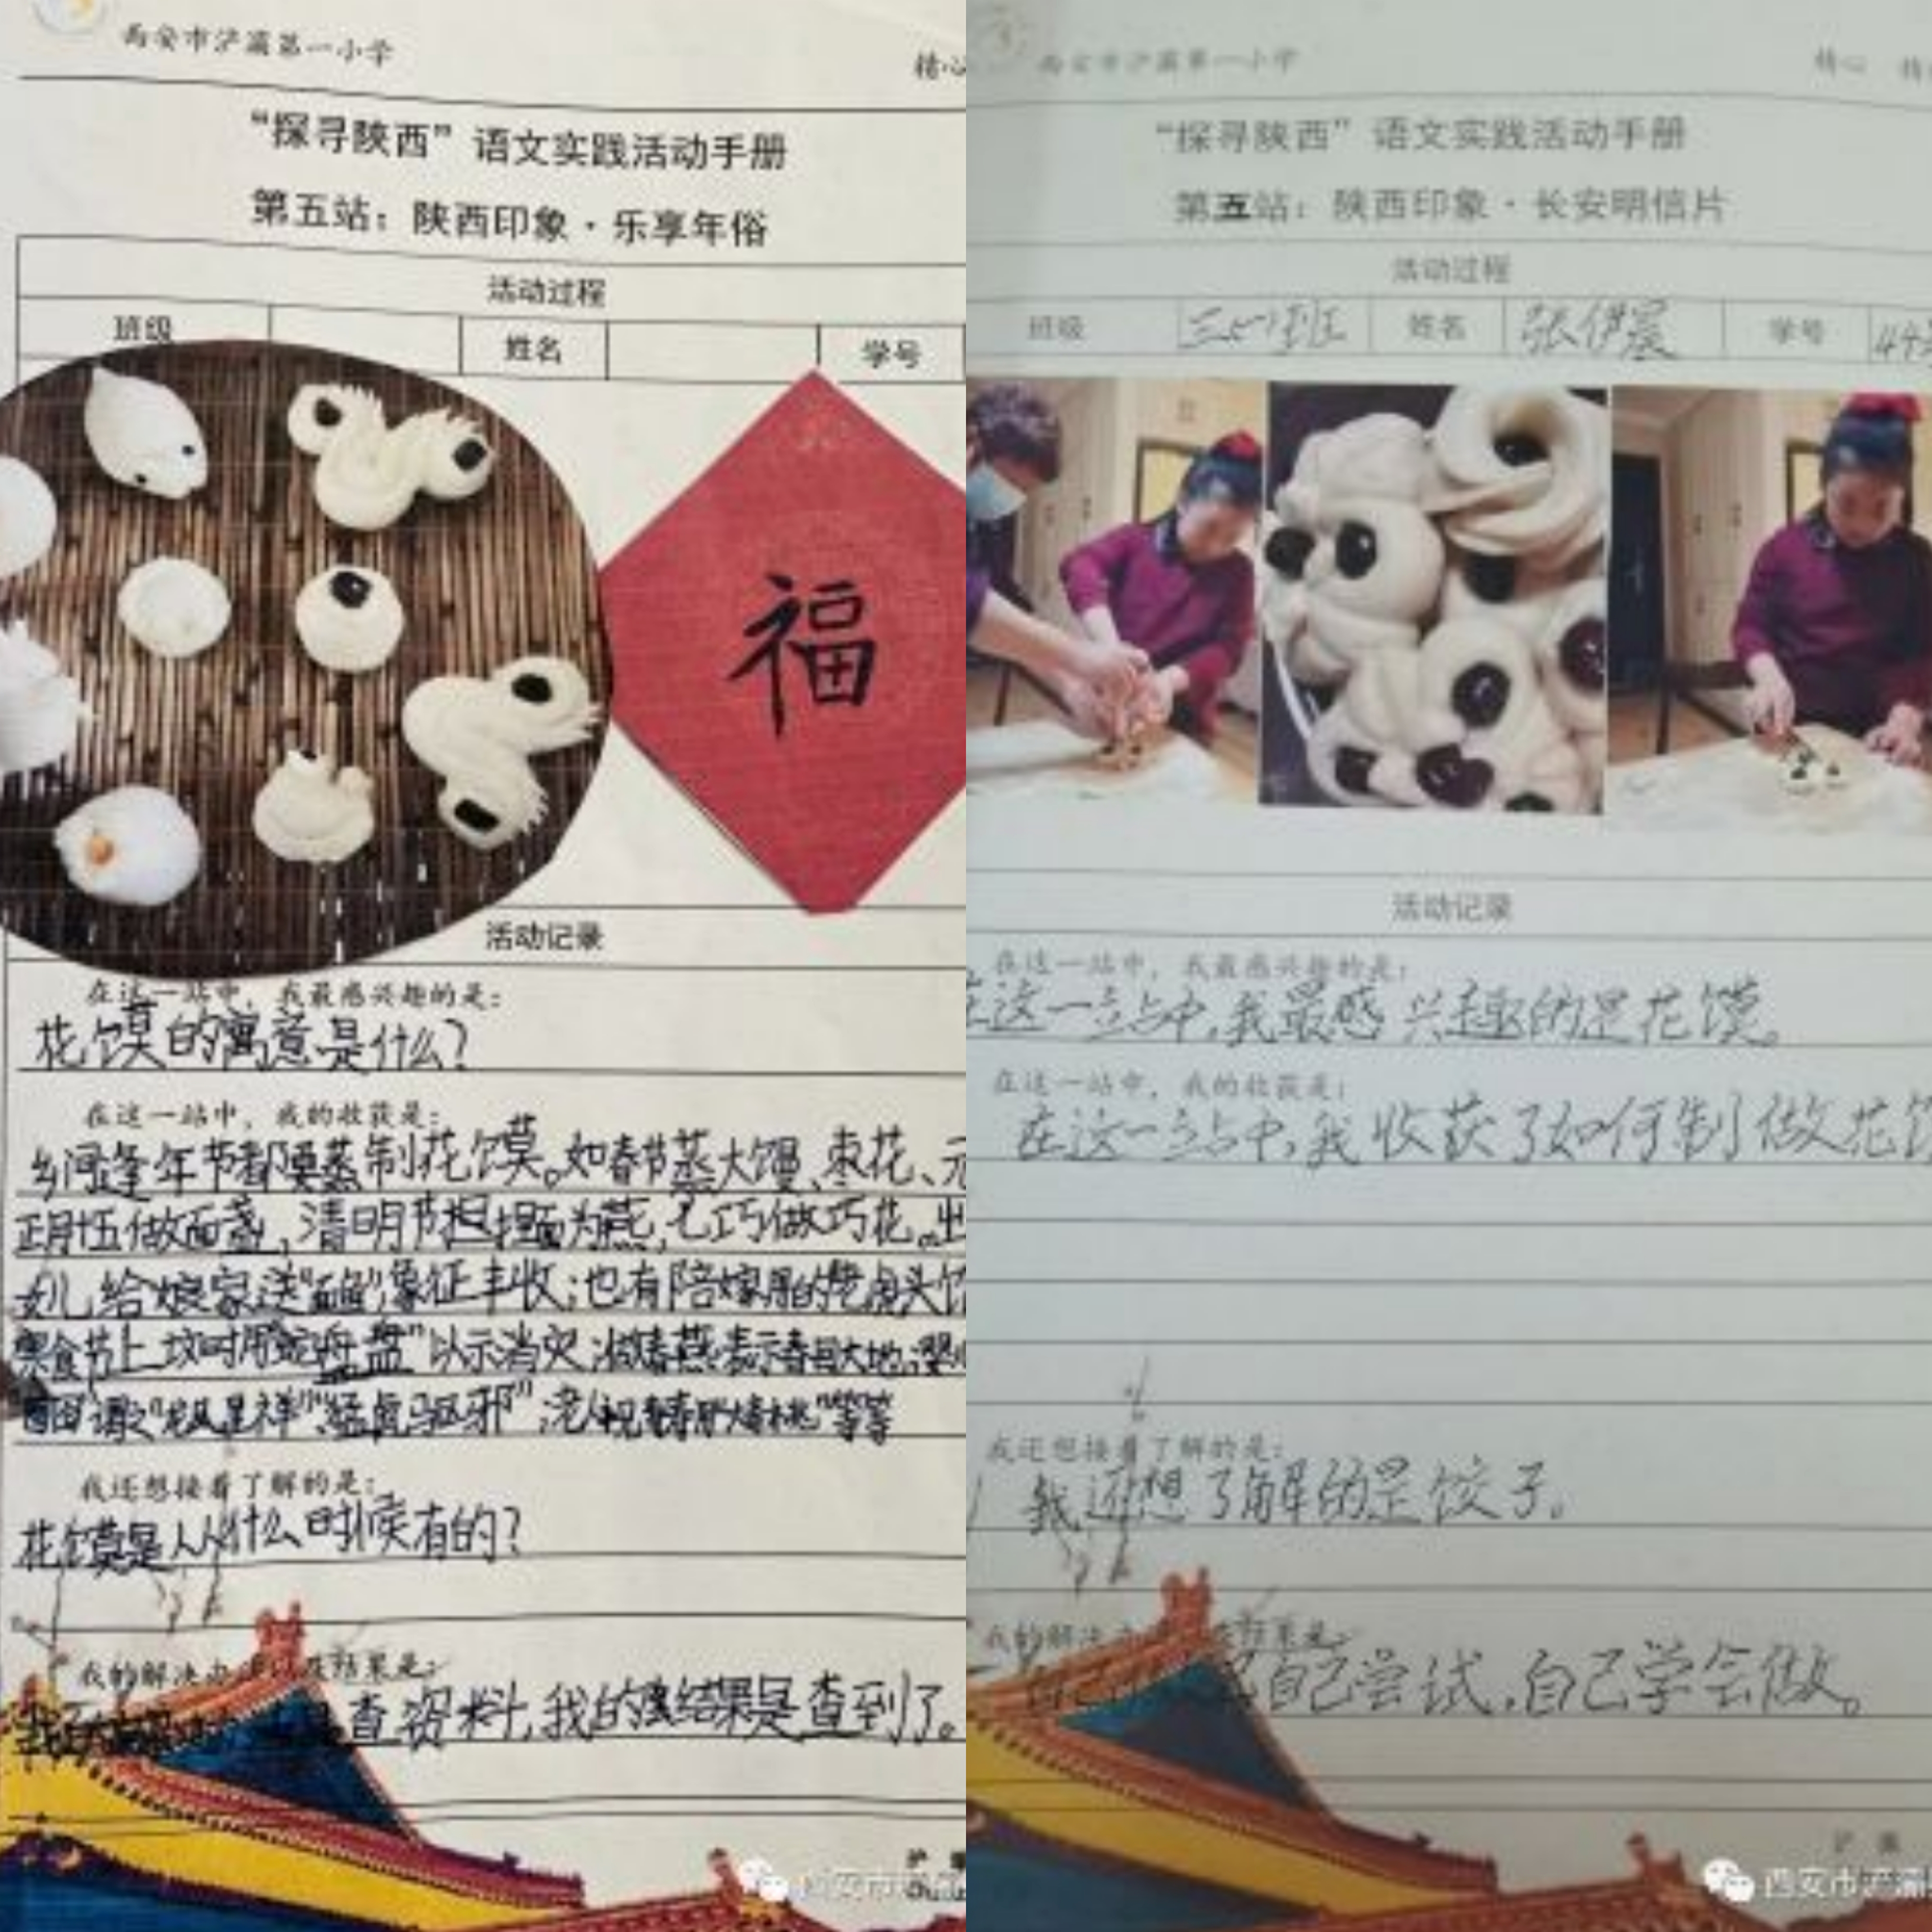 西安市浐灞第一小学
精心
“探寻陕西”语文实践活动手册
第五站：陕西印象·乐享年俗
活动过程
班级 姓名 学号
福
活动记录
在这一站中，我最感兴趣的是：
花馍的寓意是什么？
在这一站中，我的收获是：
乡间逢年节都要蒸制花馍。如春节蒸大馍、枣花、元
正月十五做面盏，清明节捏面为燕，七巧做巧花。出
女儿给娘家送“面鱼”象征丰收；也有陪嫁用的老虎头馄
寒食节上坟时用蛇盘盘”以示消灾
谓之“龙凤呈祥”“猛虎驱邪”；老人祝寿用“大寿桃”等等
我还想接着了解的是：
花馍是从什么时候有的？
我的解决办 结果是：
查资料，我的结果是查到了。
西安市
西安市浐灞第一小学
精心
“探寻陕西”语文实践活动手册
第五站：陕西印象·长安明信片
活动过程
班级 三七班 姓名 张伊宸 学号
活动记录
在这一站中，我最感兴趣的是：
在这一站中，我最感兴趣的是花馍。
在这一站中，我的收获是：
在这一站中，我收获了如何制做花馍
我还想接着了解的是：
我还想了解的是饺子。
我的解决 结果是：
自己尝试，自己学会做。
浐灞
西安市浐灞